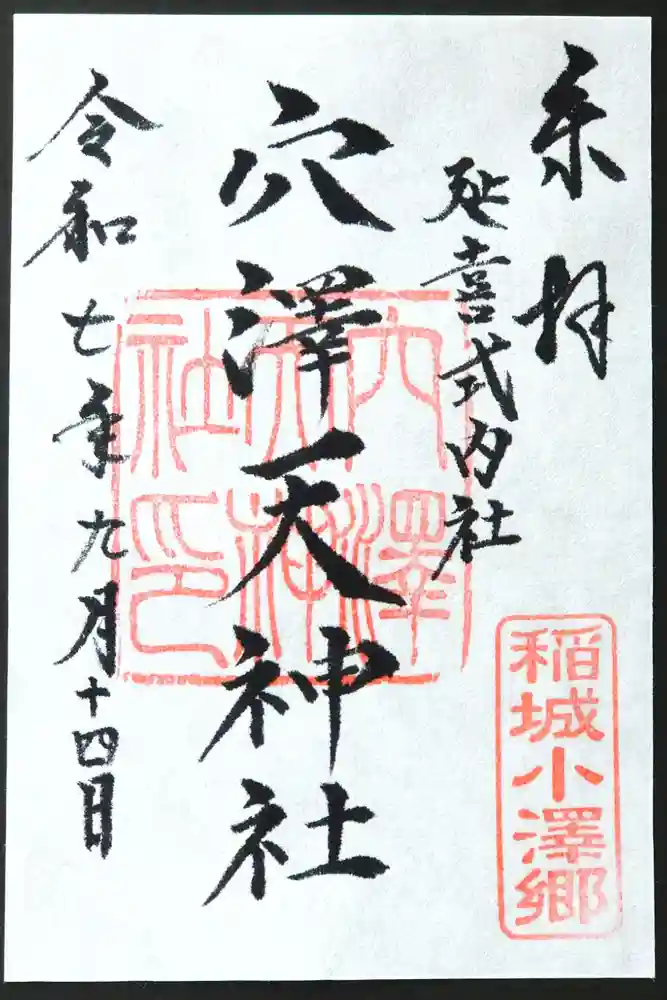 奉拝
延喜式内社
穴澤天神社
穴澤天神社印
令和七年九月十四日
稲城小澤郷